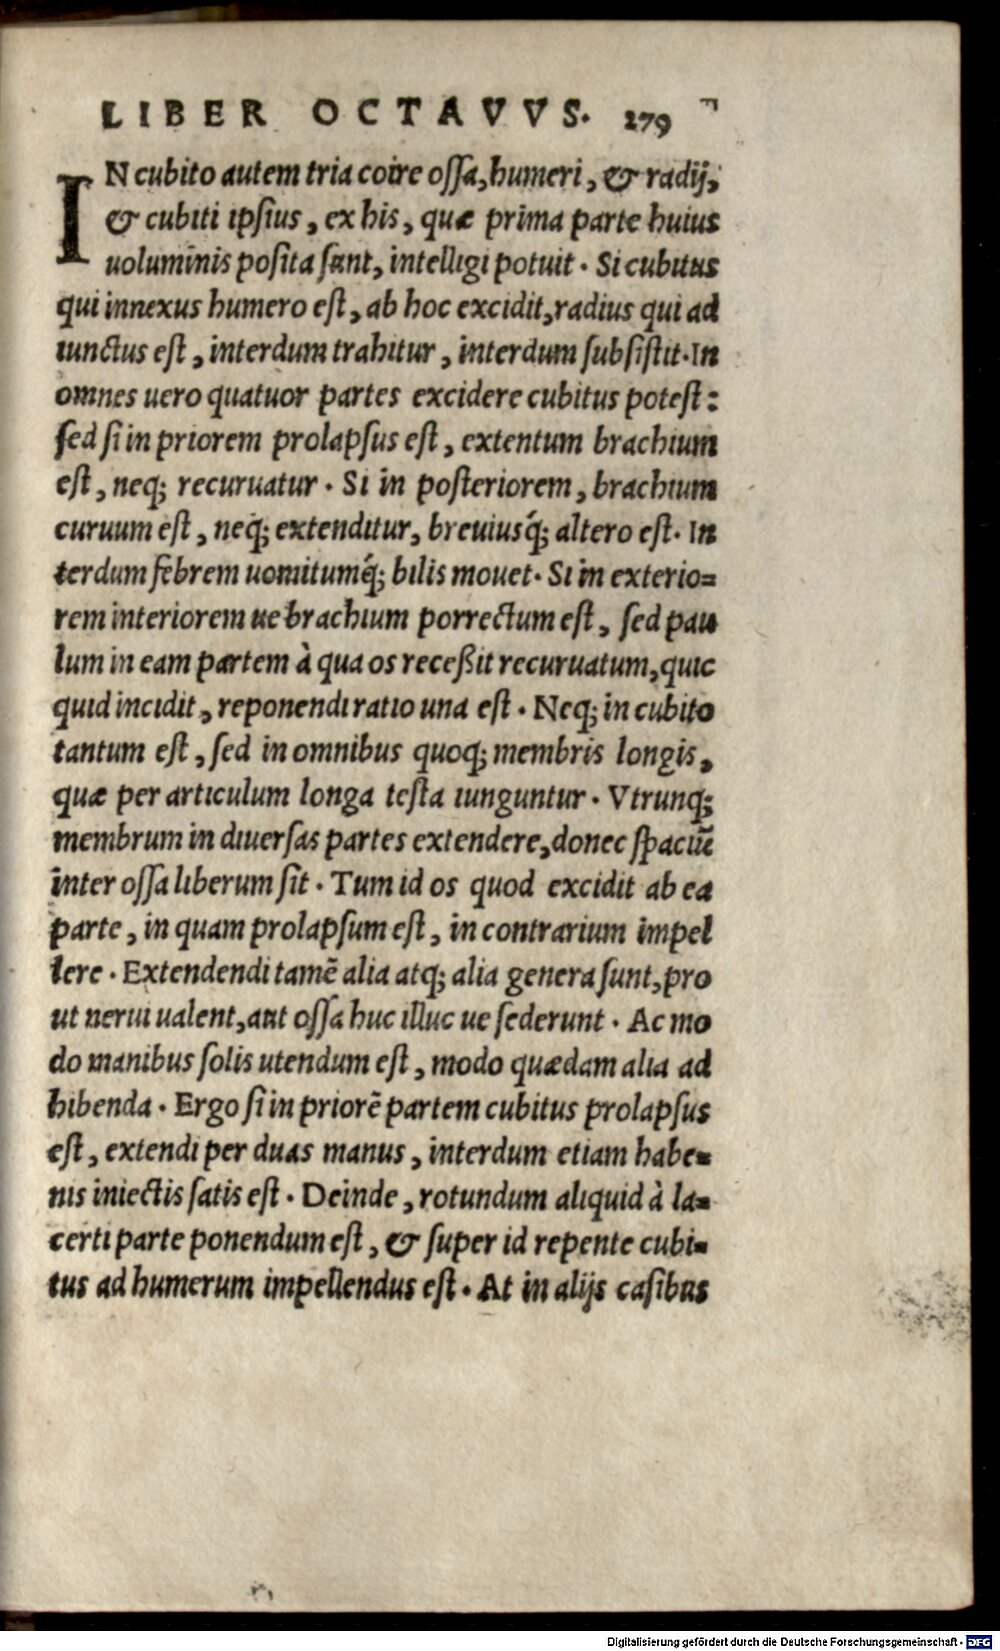 LIBER OCTAVVS. 279
IN cubito autem tria coire oſſa, humeri, & radij,
& cubiti ipſius, ex his, quæ prima parte huius
uoluminis poſita ſunt, intelligi potuit. Si cubitus
qui innexus humero eſt, ab hoc excidit, radius qui ad
iunctus eſt, interdum trahitur, interdum ſubſiſtit. In
omnes uero quatuor partes excidere cubitus poteſt:
ſed ſi in priorem prolapſus eſt, extentum brachium
eſt, neq; recuruatur. Si in poſteriorem, brachium
curuum eſt, neq; extenditur, breuiusq́; altero eſt. In
terdum febrem uomitumq́; bilis mouet. Si in exterio=
rem interiorem ue brachium porrectum eſt, ſed pau
lum in eam partem à qua os receßit recuruatum, quic
quid incidit, reponendi ratio una eſt. Neq; in cubito
tantum eſt, ſed in omnibus quoq; membris longis,
quæ per articulum longa teſta iunguntur. Vtrunq;
membrum in diuerſas partes extendere, donec ſpaciũ
inter oſſa liberum ſit. Tum id os quod excidit ab ea
parte, in quam prolapſum eſt, in contrarium impel
lere. Extendendi tamẽ alia atq; alia genera ſunt, pro
ut nerui ualent, aut oſſa huc illuc ue ſederunt. Ac mo
do manibus ſolis utendum eſt, modo quædam alia ad
hibenda. Ergo ſi in priorẽ partem cubitus prolapſus
eſt, extendi per duas manus, interdum etiam habe=
nis iniectis ſatis eſt. Deinde, rotundum aliquid à la=
certi parte ponendum eſt, & ſuper id repente cubi=
tus ad humerum impellendus eſt. At in alijs caſibus
Digitalisierung gefördert durch die Deutsche Forschungsgemeinschaft - DFG